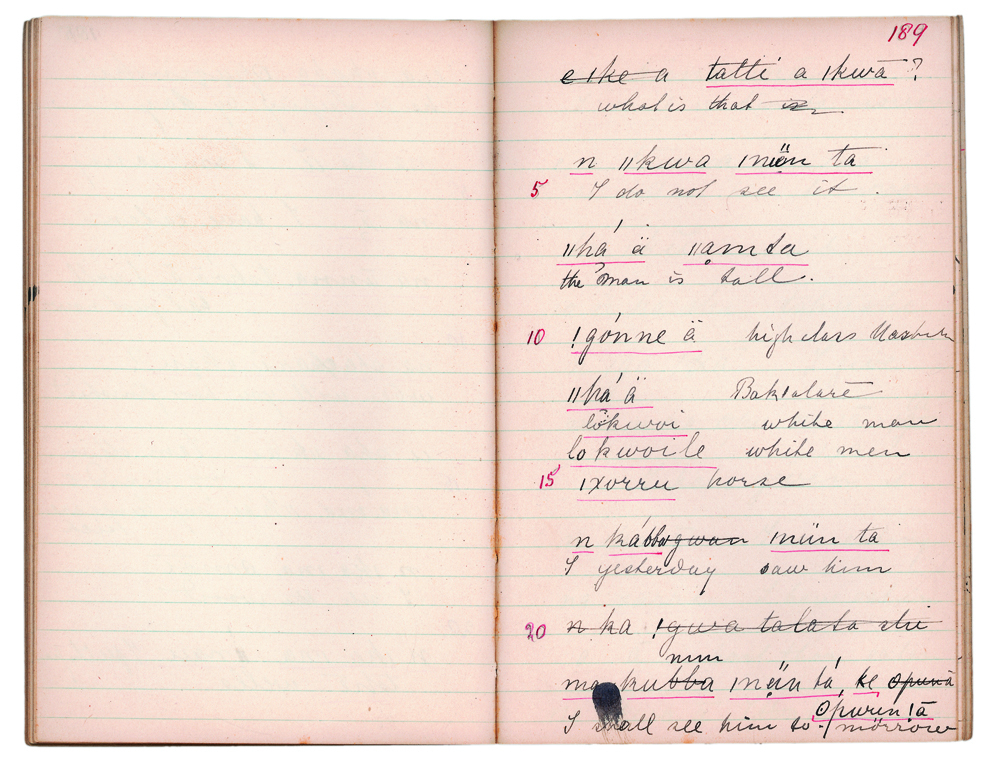 189
e ike a tatti a ıkwā ?
what is that is
n ıı kwa ınün ta
5 I do not see it .
ııhá ä ııạmta
the man is tall .
10 !gónne ä high class
ııhá ä Bakıalarē
lôkwoi white man
lokwoile white men
15 ıxorru horse
n ká ınün ta
I yesterday saw him
20 n ka !gwa talata
nun
kubba ınün tá, ke opunā
opurin!ā
I shall see him to-morrow